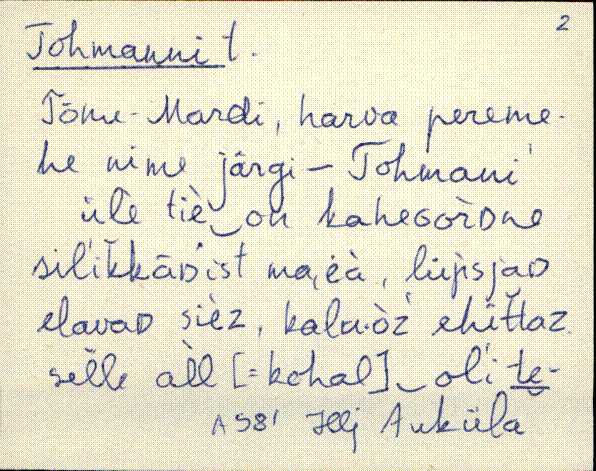 2
Tohmanni t.
Tõnu-Mardi, harva pereme-
he nime järgi – Tohmani
üle tiè on kahegòrDne
silikkāDist maja, lüpsjaD
elavaD sièz, kalu·òz ehittaz
selle àll [= kohal] oli te-
A 981 Hlj Auküla